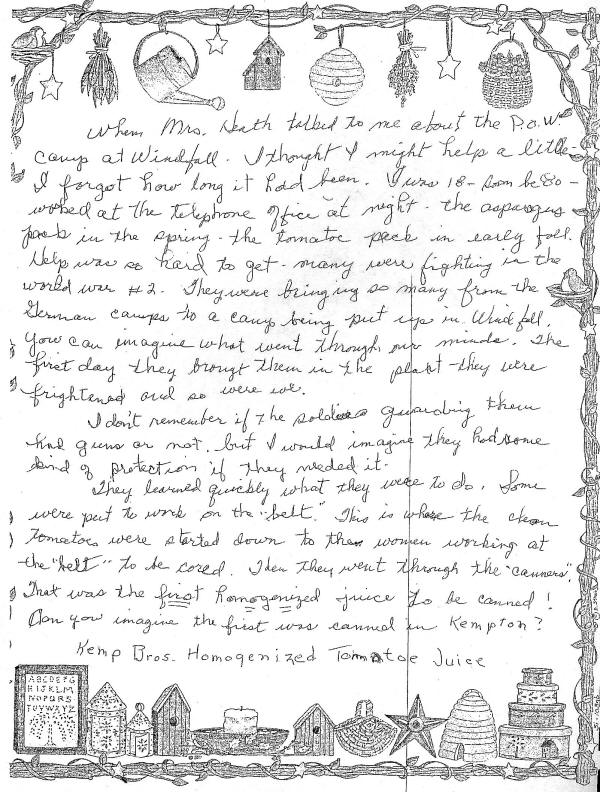 When Mrs. Heath talked to me about the P.O.W.
camp at Windfall. I thought I might help a little-
I forgot how long it had been. I was 18 - soon be 80 -
worked at the telephone office at night - the asparagus
pack in the spring - the tomatoe pack in early fall.
Help was so hard to get - many were fighting in the
world war #2. They were bringing so many from the
German camps to a camp being put up in Windfall.
You can imagine what went through our minds. The
first day they brougt them in the plant - they were
frightened and so were we.
I don't remember if the soldiers guarding them
had guns or not, but I would imagine they had some
kind of protection if they needed it.
They learned quickly what they were to do. Some
were put to work on the "belt." This is where the clean
tomatoes were started down to the women working at
the "belt" to be cored. Then they went through the "canners".
That was the first homogenized juice to be canned!
Can you imagine the first was canned in Kempton?
Kemp Bros. Homogenized Tomatoe Juice
ABCDEFG
HIJKLM
NOPQRS
TUVWXYZ